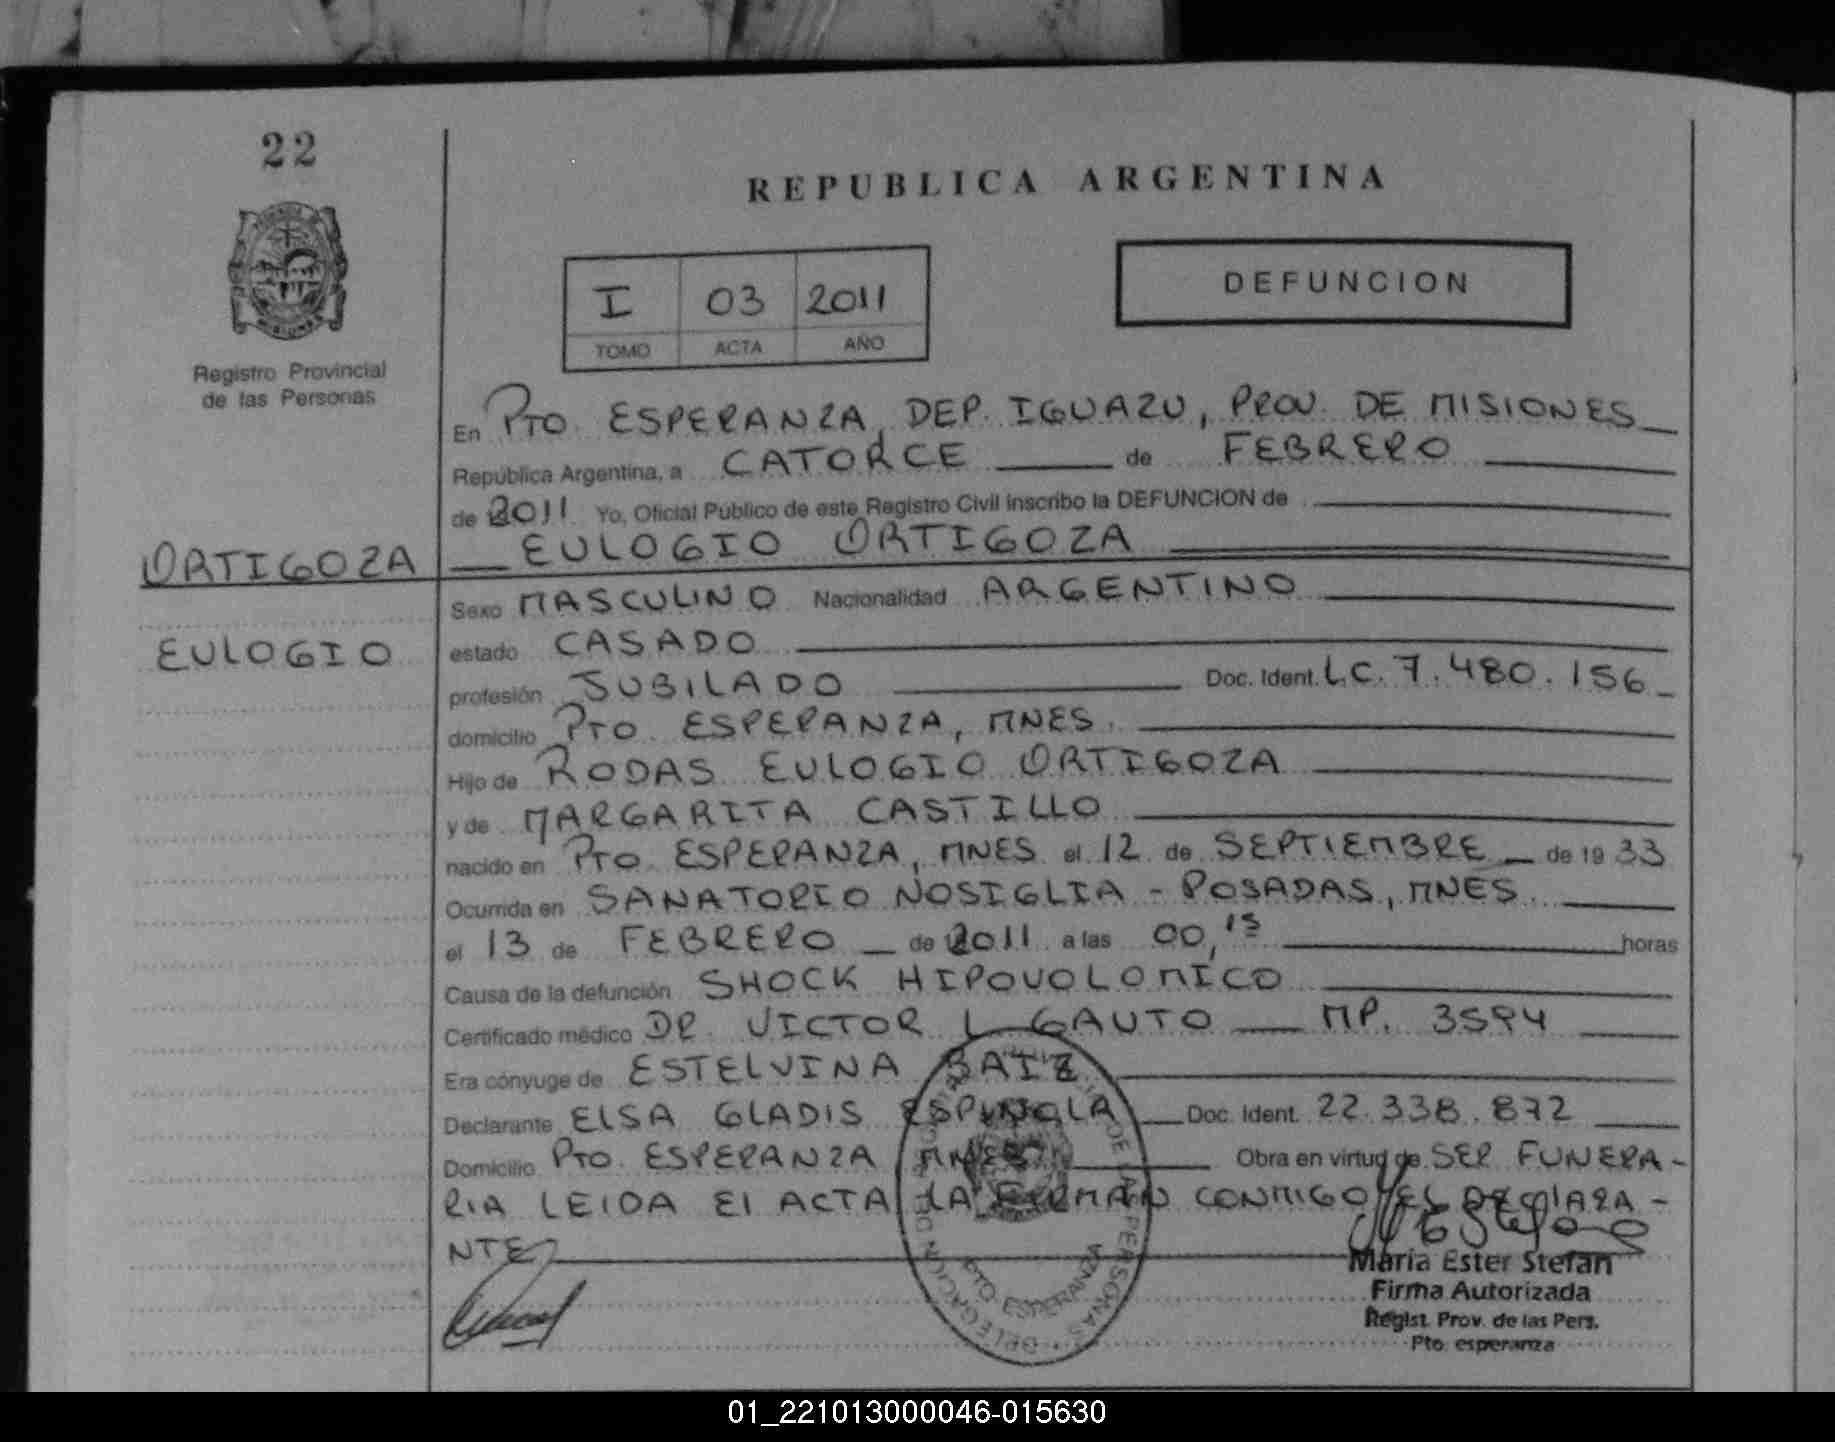 22
REPUBLICA ARGENTINA
I 03 2011
TOMO ACTA AÑO
DEFUNCION
Registro Provincial
de las Personas
En PTO ESPERANZA, DEP. IGUAZU, PROV. DE MISIONES
República Argentina, a CATORCE de FEBRERO
de 2011 Yo, Oficial Público de este Registro Civil inscribo la DEFUNCION de
ORTIGOZA
EULOGIO ORTIGOZA
Sexo MASCULINO Nacionalidad ARGENTINO
EULOGIO
estado CASADO
profesión JUBILADO Doc. Ident. L.C. 7.480.156
domicilio PTO ESPERANZA, MNES.
Hijo de RODAS EULOGIO ORTIGOZA
y de MARGARITA CASTILLO
nacido en PTO ESPERANZA, MNES el 12 de SEPTIEMBRE de 1933
Ocurrida en SANATORIO NOSIGLIA - POSADAS, MNES.
el 13 de FEBRERO de 2011 a las 00,15 horas
Causa de la defunción SHOCK HIPOVOLOMICO
Certificado médico DR. VICTOR L GAUTO MP. 3594
Era cónyuge de ESTELVINA BAIZ
Declarante ELSA GLADIS ESPINOLA Doc. Ident. 22.338.872
Domicilio PTO. ESPERANZA, MNES Obra en virtud de SER FUNERA-
RIA LEIDA El ACTA LA FIRMAN CONMIGO EL DECLARA-
NTE
Maria Ester Stefan
Firma Autorizada
Regist. Prov. de las Pers.
Pto. esperanza
PTO ESPERANZA
01_221013000046-015630